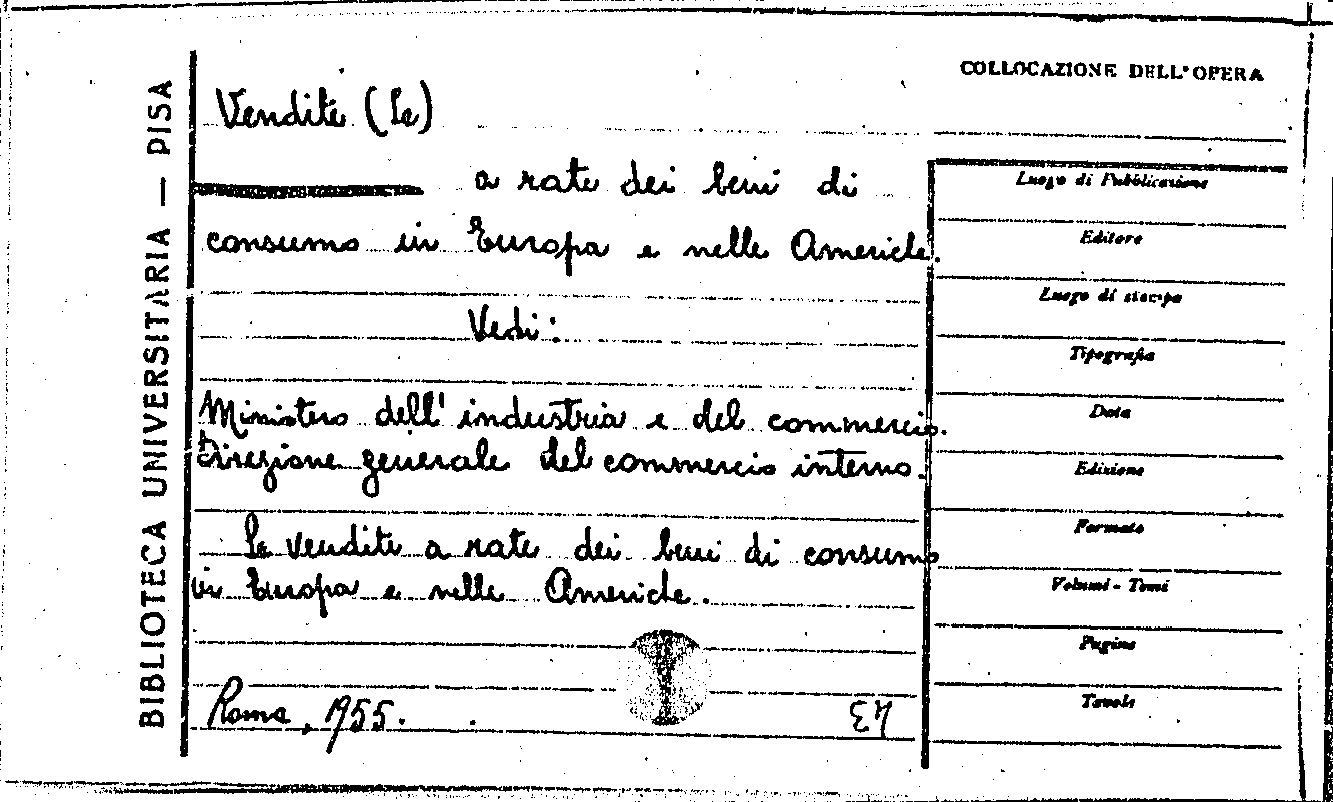 BIBLIOTECA UNIVERSITARIA — PISA
COLLOCAZIONE DELL'OPERA
Vendite (Le)
a rate dei beni di
consumo in Europa e nelle Americhe.
Vedi:
Ministero dell'industria e del commercio.
Direzione generale del commercio interno.
Le vendite a rate dei beni di consumo
in Europa e nelle Americhe.
Roma, 1955.
Luogo di Pubblicazione
Editore
Luogo di stampa
Tipografia
Data
Edizione
Formato
Volumi - Tomi
Pagine
Tavole